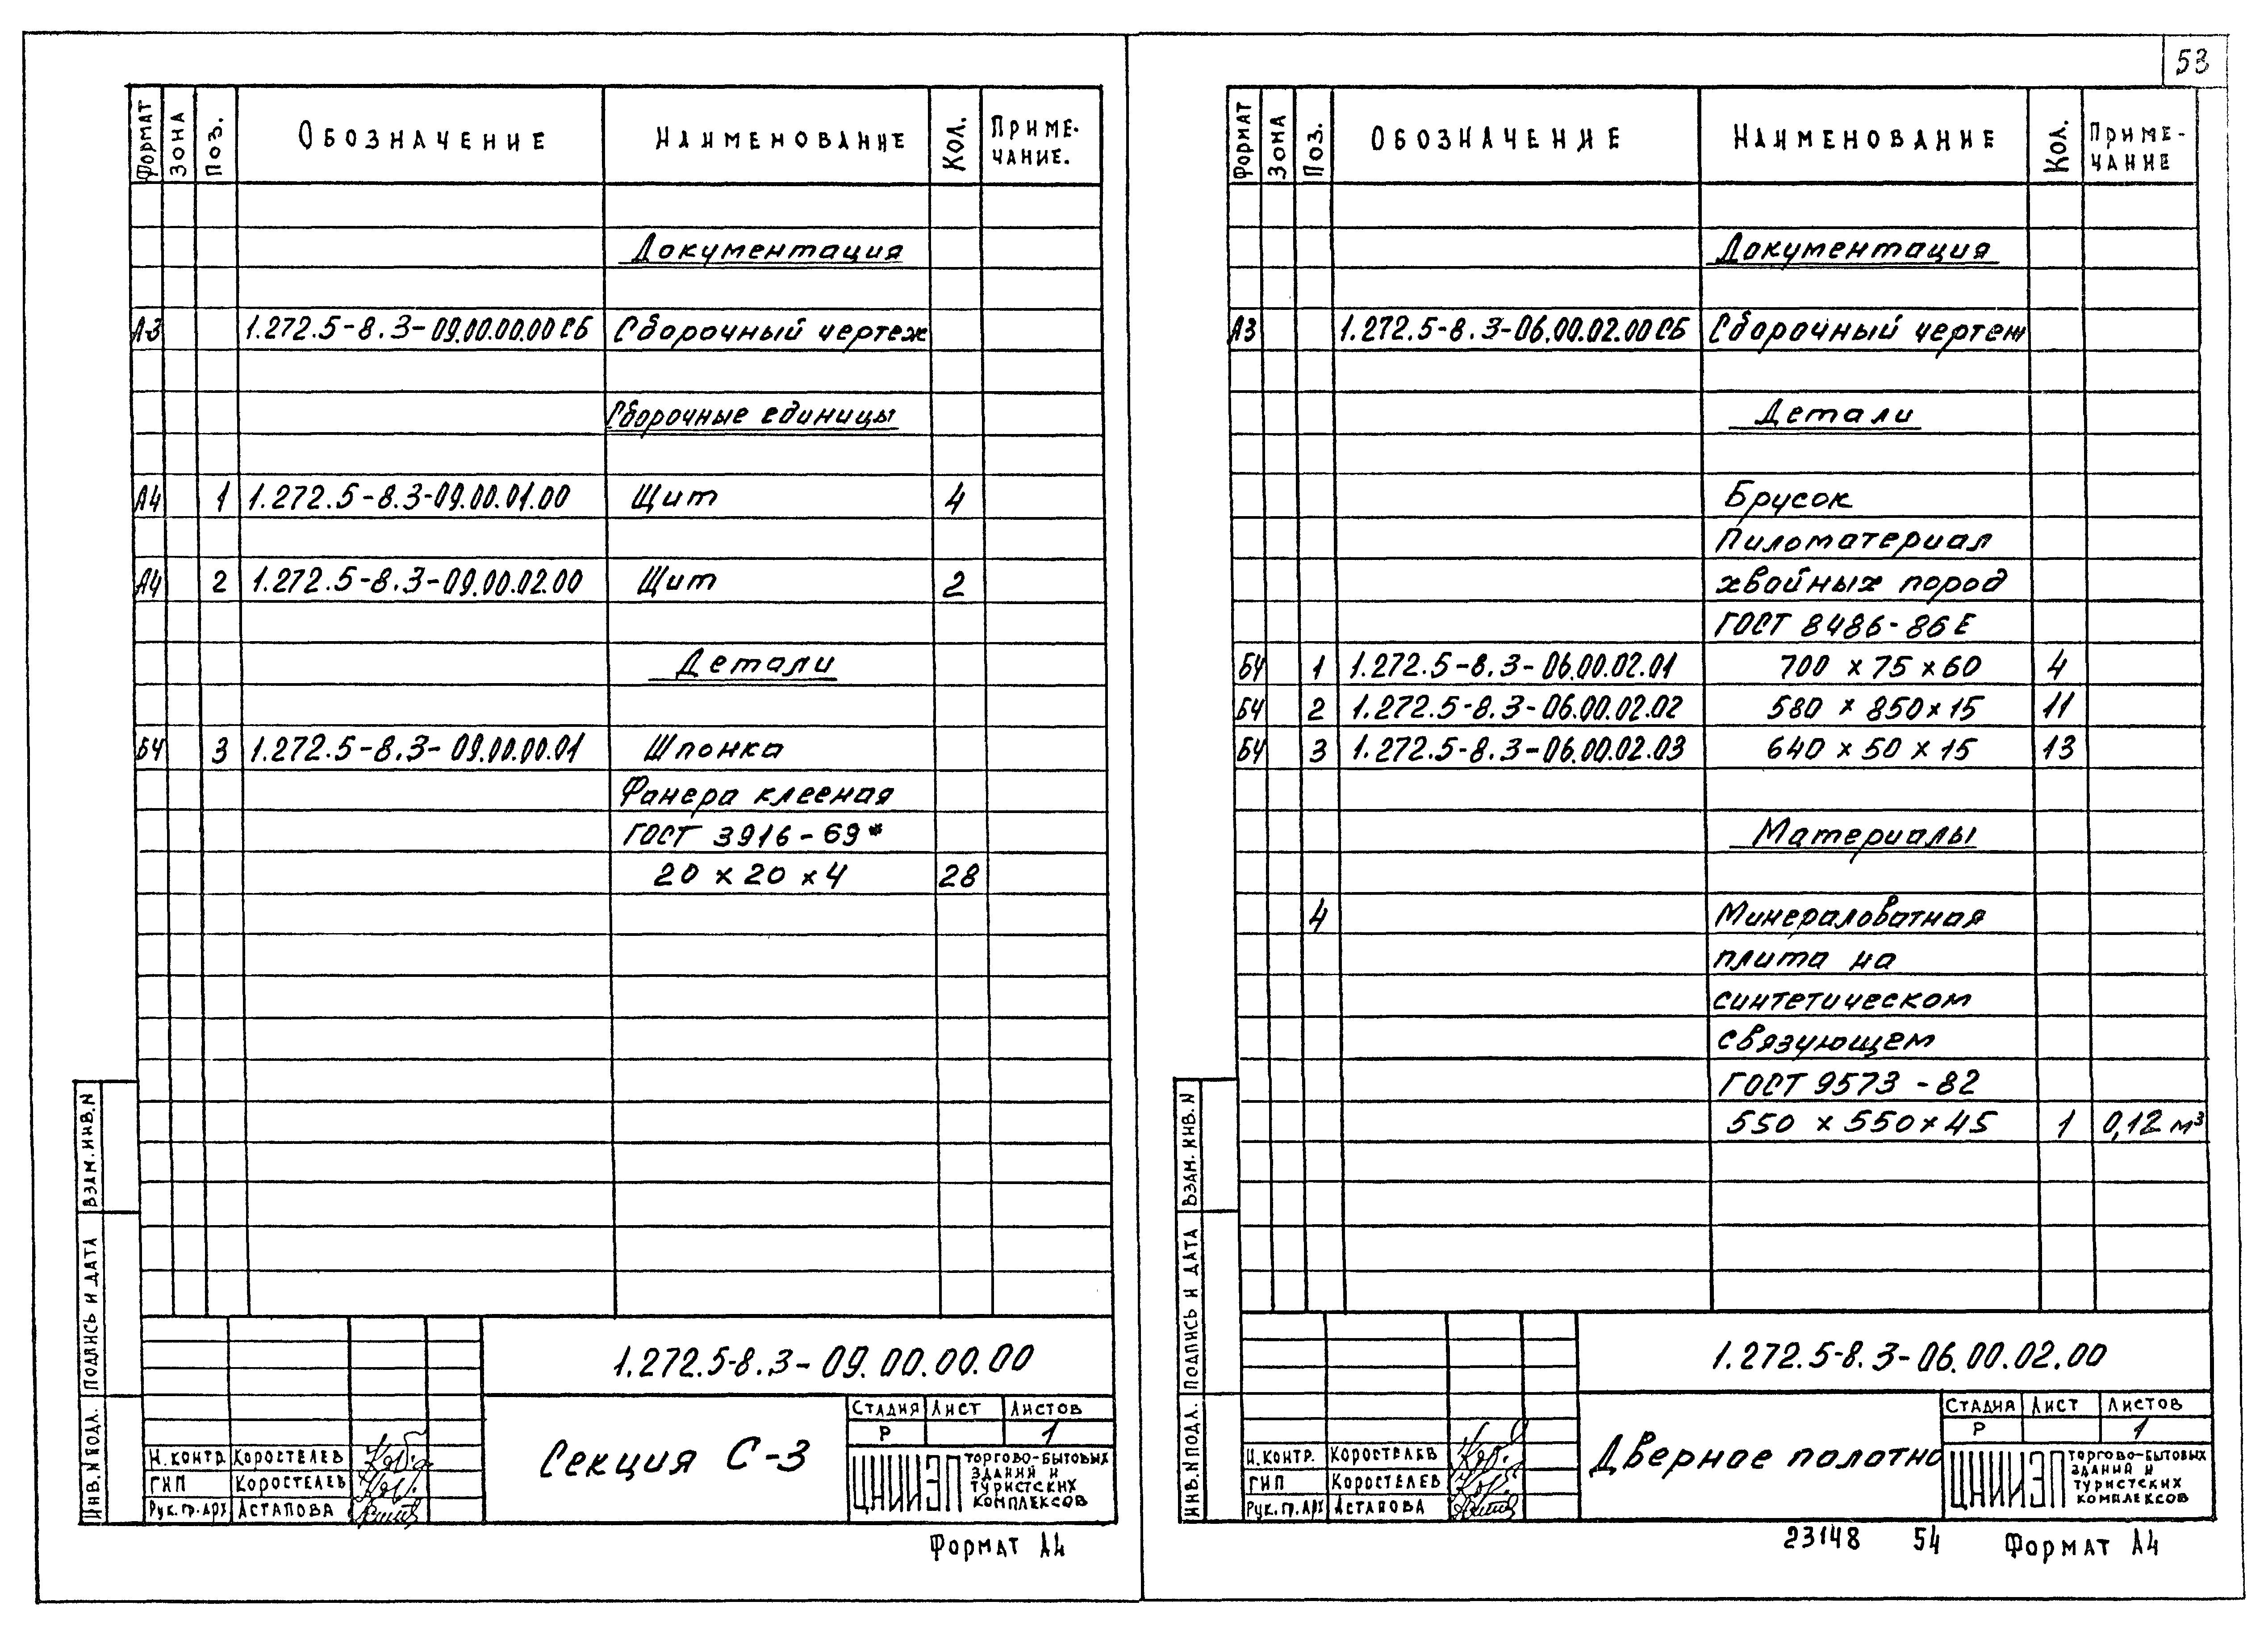 53
Формат Зона Поз. Обозначение Наименование Кол. Приме-
чание.
Документация
А3 1.272.5-8.3-09.00.00.00СБ Сборочный чертеж
Сборочные единицы
А4 1 1.272.5-8.3-09.00.01.00 Щит 4
А4 2 1.272.5-8.3-09.00.02.00 Щит 2
Детали
БЧ 3 1.272.5-8.3-09.00.00.01 Шпонка
Фанера клееная
ГОСТ 3916-69*
20 х 20 х 4 28
Взам. инв. N
Подпись и дата
Инв. N подл.
1.272.5-8.3-09.00.00.00
Секция С-3
Стадия Лист Листов
Р 1
Н. контр. Коростелев
ГИП Коростелев
Рук. гр. арх Астапова
ЦНИИЭП торгово-бытовых
зданий и
туристских
комплексов
Формат А4
Формат Зона Поз. Обозначение Наименование Кол. Приме-
чание
Документация
А3 1.272.5-8.3-06.00.02.00СБ Сборочный чертеж
Детали
Брусок
Пиломатериал
хвойных пород
ГОСТ 8486-86Е
БЧ 1 1.272.5-8.3-06.00.02.01 700 х 75 х 60 4
БЧ 2 1.272.5-8.3-06.00.02.02 580 х 850 х 15 11
БЧ 3 1.272.5-8.3-06.00.02.03 640 х 50 х 15 13
Материалы
4 Минераловатная
плита на
синтетическом
связующем
ГОСТ 9573-82
550 х 550 х 45 1 0,12 м³
Взам. инв. N
Подпись и дата
Инв. N подл.
1.272.5-8.3-06.00.02.00
Дверное полотно
Стадия Лист Листов
Р 1
Н. контр. Коростелев
ГИП Коростелев
Рук. гр. арх Астапова
ЦНИИЭП торгово-бытовых
зданий и
туристских
комплексов
23148 54 Формат А4